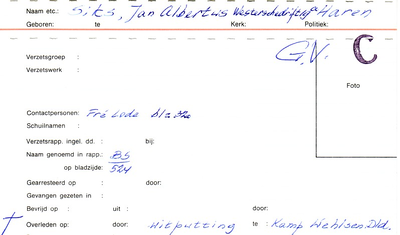 Naam etc.: Siks, Jan Albertus Westersedrijfweg Haren
Geboren: te Kerk: Politiek:
G.V. C
Verzetsgroep :
Verzetswerk :
Foto
Contactpersonen: Fré Lode blz 32a
Schuilnamen :
Verzetsrapp. ingel. dd. : bij:
Naam genoemd in rapp.: BS
op bladzijde: 524
Gearresteerd op : door:
Gevangen gezeten in :
Bevrijd op : uit : door:
† Overleden op: door: uitputting te : Kamp Wehlsen Dld.